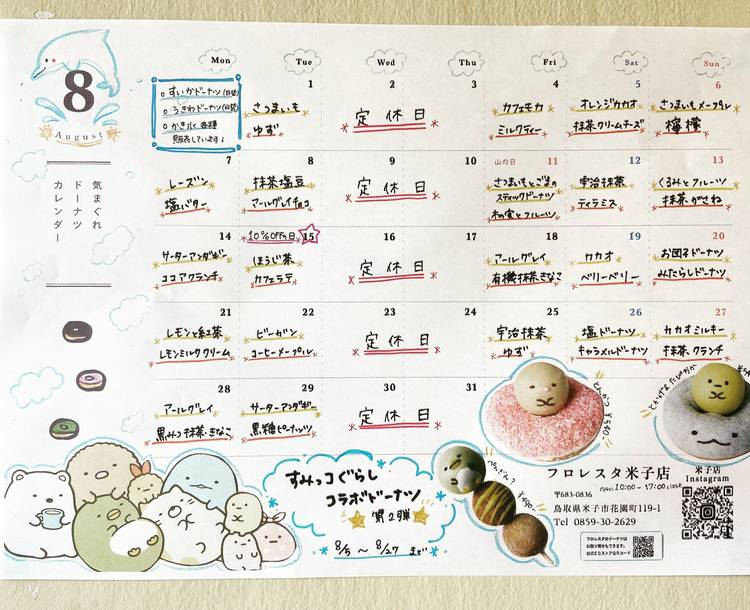 8
August
気まぐれ
ドーナツ
カレンダー
Mon Tue Wed Thu Fri Sat Sun
○すいかドーナツ(日替)
○うきわドーナツ(日替)
○かき氷 各種
販売しています!
1
さつまいも
ゆず
2
3
定休日
4
カフェモカ
ミルクティー
5
オレンジカカオ
抹茶クリームチーズ
6
さつまいもメープル
檸檬
7
レーズン
塩バター
8
抹茶塩豆
アールグレイチョコ
9
10
定休日
山の日 11
さつまいもとごまの
スティックドーナツ
木の実とフルーツ
12
宇治抹茶
ティラミス
13
くるみとフルーツ
抹茶がさね
14
サーターアンダギー
ココアクランチ
10%OFFの日 15
ほうじ茶
カフェラテ
16
17
定休日
18
アールグレイ
有機抹茶きなこ
19
カカオ
ベリーベリー
20
お団子ドーナツ
みたらしドーナツ
21
レモンと紅茶
レモンミルククリーム
22
ビーガン
コーヒーメープル
23
24
定休日
25
宇治抹茶
ゆず
26
塩ドーナツ
キャラメルドーナツ
27
カカオミルキー
抹茶クランチ
28
アールグレイ
黒みつ抹茶きなこ
29
サーターアンダギー
黒糖ピーナッツ
30
31
定休日
すみっコぐらし
コラボドーナツ
第2弾
8/5 〜 8/27 まで
ぺんぎん?
¥490
とんかつ ¥540
フロレスタ米子店
open 10:00 - 17:00 close
〒683-0836
鳥取県米子市花園町119-1
Tel 0859-30-2629
米子店
Instagram
フロレスタのドーナツは
お取り寄せもできます。
公式ECストアQRコード